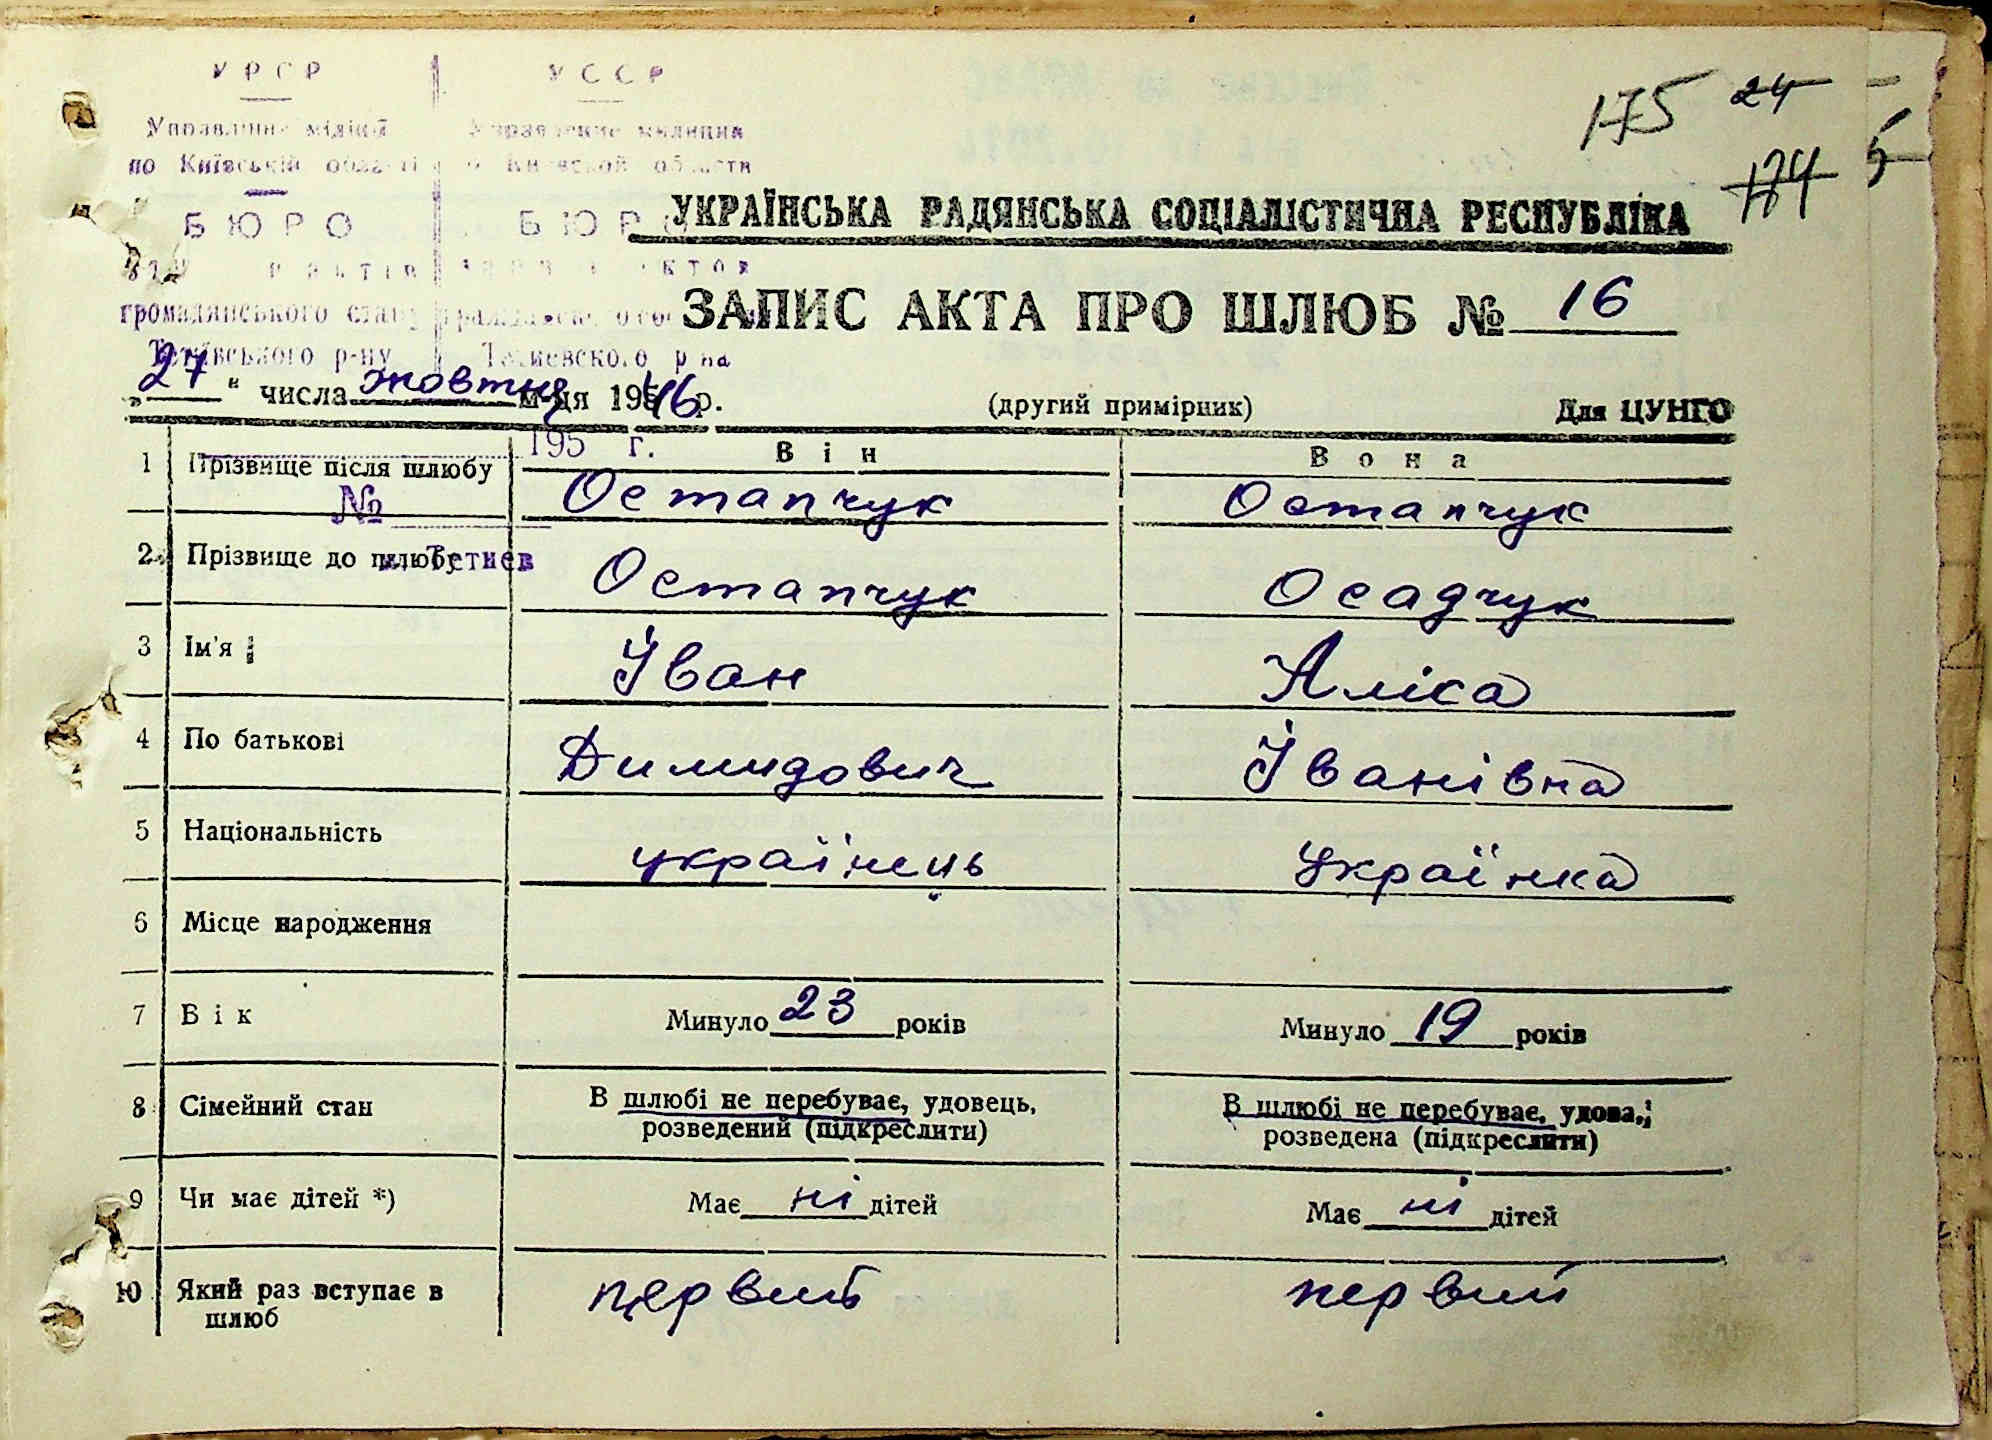 УРСР
УССР
Управління міліції
Управление милиции
по Київській області
по Киевской области
БЮРО
БЮРО
175 24
174 5
УКРАЇНСЬКА РАДЯНСЬКА СОЦІАЛІСТИЧНА РЕСПУБЛІКА
актів
актов
громадянського стану
ЗАПИС АКТА ПРО ШЛЮБ № 16
Тетіївського р-ну
Тетиевского р-на
„27" числа жовтня м-ця 1946 р.
(другий примірник)
Для ЦУНГО
195 г.
Він
Вона
1 Прізвище після шлюбу Остапчук Остапчук
№
2 Прізвище до шлюбу Остапчук Осадчук
м. Тетиев
3 Ім'я Іван Аліса
4 По батькові Димидович Іванівна
5 Національність українець Українка
6 Місце народження
7 Вік Минуло 23 років Минуло 19 років
8 Сімейний стан В шлюбі не перебуває, удовець, розведений (підкреслити) В шлюбі не перебуває, удова, розведена (підкреслити)
9 Чи має дітей *) Має ні дітей Має ні дітей
10 Який раз вступає в шлюб первий первий